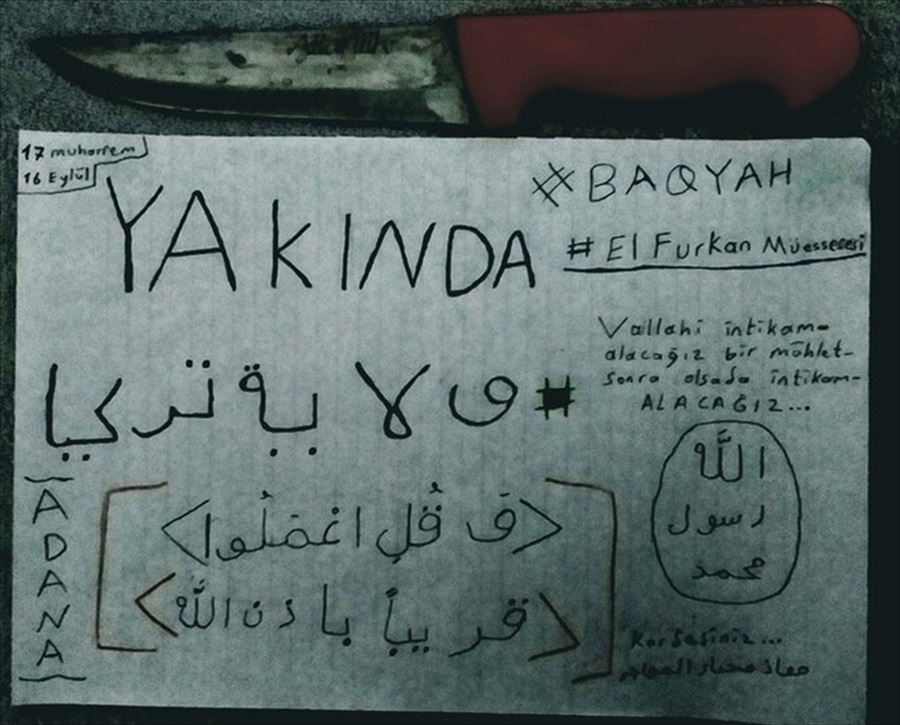 17 muharrem
16 Eylül
#BAQYAH
YAKINDA
# El Furkan Müessesesi
Vallahi intikam-
alacağız bir mühlet-
sonra olsada intikam-
ALACAĞIZ...
#ولاية تركيا
الله
رسول
محمد
ADANA
<وَ قُلِ اعْمَلُوا>
<قريباً باذن الله>